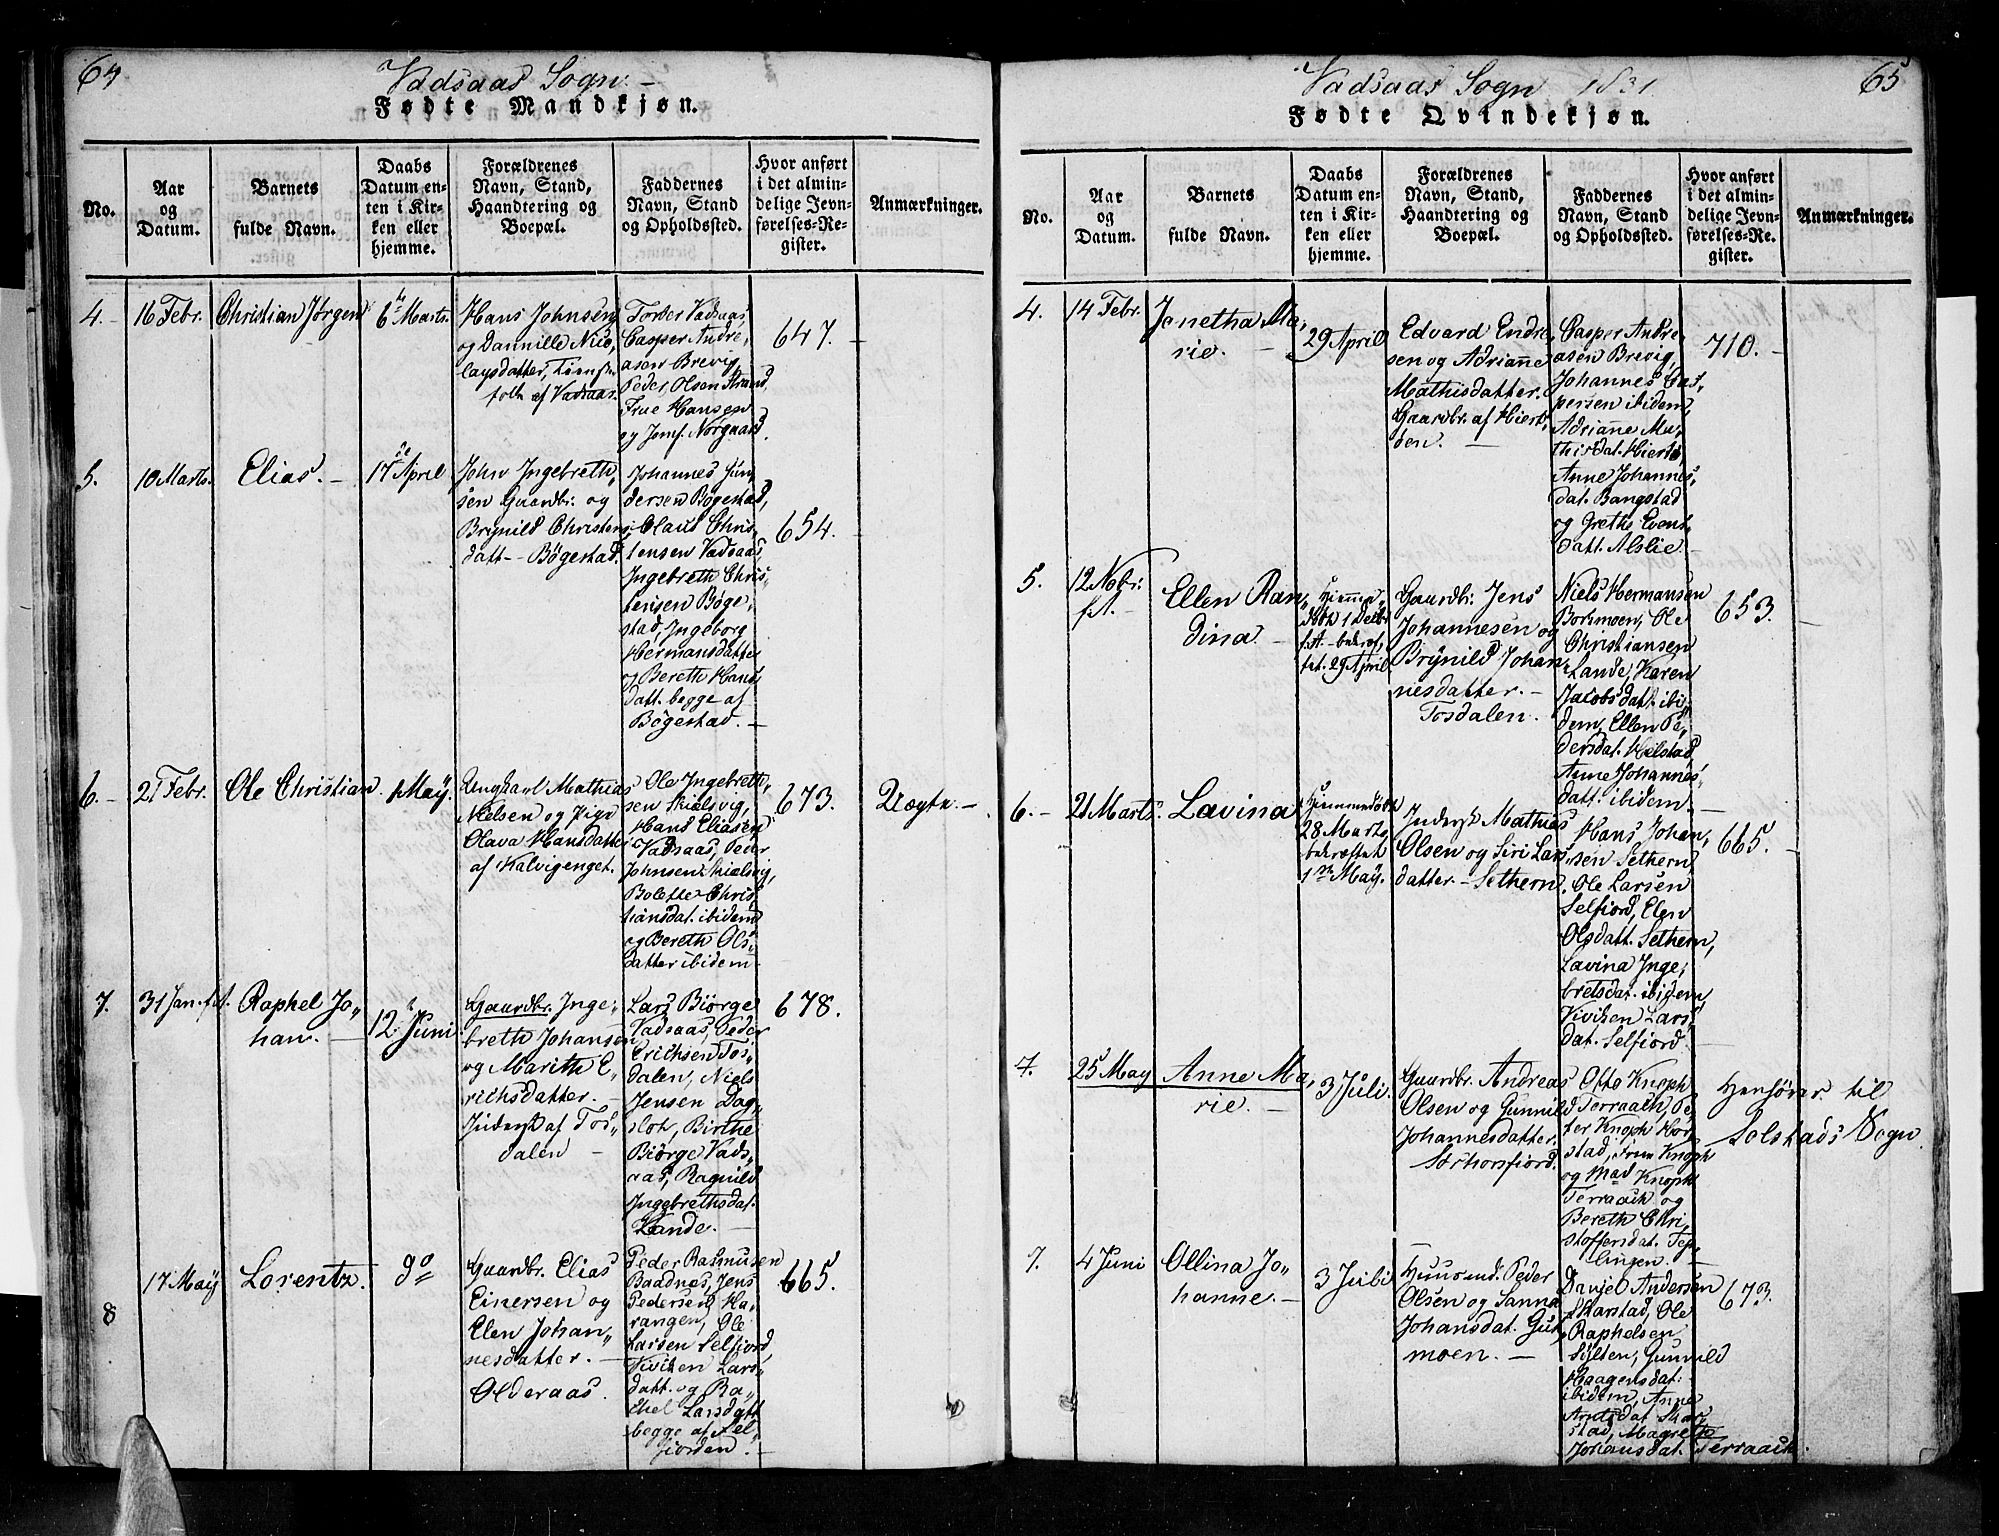 64
Vadsaas Sogn. —
Fødte Mandkjøn.
No.
Aar
og
Datum.
Barnets
fulde Navn.
Daabs
Datum en-
ten i Kir-
ken eller
hjemme.
Forældrenes
Navn, Stand,
Haandtering og
Boepæl.
Faddernes
Navn, Stand
og Opholdssted.
Hvor anført
i det almin-
delige Jevn-
førelses-Re-
gister.
Anmærkninger.
4. -
16 Febr.
Christian Jørgen
6te Marts.
Hans Johnsen
og Dannille Nico,
laysdatter,
folk af Vadsaas.
Torber Vadsaas,
Casper Andre,
asen Brevig,
Peder Olsen Strand,
Frue Hansen
og Jomf. Norgaard.
647. —
5.
10 Marts.
Elias. —
17de April
John Ingebreth,
sen Gaardbr. og
Brynild Christens
datt — Bøgestad.
Johannes Gun,
dersen Bøgestad,
Claus Chris,
tensen Vadsaas,
Ingebreth Chris,
tensen Bøge,
stad, Ingeborg
Hermansdatter
og Bereth Hans
datt. begge af
Bøgestad. —
654. —
6. -
21 Febr.
Ole Christian.
1 May.
Ungkarl Mathias
Nielsen og Pige
Olava Hansdatter
af Kalvigenget.
Ole Ingebreth,
sen Skielsvig,
Hans Eliasen
Vadsaas, Peder
Johnsen Skielsvig,
Bolette Chris,
tiansdat. ibidem
og Bereth Ols,
datter ibidem —
673.
Uægte. —
7.
31 Jan. f.A.
Raphel Jo,,
han. —
12te Juni
Gaardbr. Inge,
breth Johansen
og Marith E,
richsdatter. —
Inderst af Tos,,
dalen —
Lars Biørge
Vadsaas, Peder
Erichsen Tos,
dalen, Niels
Jensen Dag,,
slot, Birthe
Biørge Vads,
aas, Ragnild
Ingebrethsdat.
Lande. —
678.
8
17 May
Lorentz.
do
Gaardbr. Elias
Einersen og
Elen Johan,,
nesdatter. —
Olderaas.
Peder Rasmusen
Baadnæs, Jens
Pedersen Ha,
rangen, Ole
Larsen Selfiord,
Vivicken Lars,
datt. og Ra,,
chel Larsdatt
begge af Sel,
fiorden. —
665.
65
Vadsaas Sogn 1831.
Fødte Qvindekjøn.
No.
Aar
og
Datum.
Barnets
fulde Navn.
Daabs
Datum en-
ten i Kir-
ken eller
hjemme.
Forældrenes
Navn, Stand,
Haandtering og
Boepæl.
Faddernes
Navn, Stand
og Opholdssted.
Hvor anført
i det almin-
delige Jevn-
førelses-Re-
gister.
Anmærkninger.
4.
14 Febr.
Jonetha Ma,
rie. —
29 April
Edvard Endre,
sen og Adrianne
Mathisdatter.
Gaardbr. af Hiert,
øen. —
Casper Andre,
asen Brevig,
Johannes Cas,
persen ibidem,
Adrianne Ma,
thisdat. Hiertø
Anne Johannes,
dat. Bangstad
og Grethe Evens
datt. Alslie. —
710. —
5.
12 Nobr.
f.A. —
Ellen Ran,,
dina —
Hiemme
døbt 1 Decbr
f.A. bekræf,
tet. 29 April
Gaardbr. Jens
Johannesen og
Brynild Johan,
nesdatter. —
Tosdalen.
Niels Hermansen
Borkmoen, Ole
Christiansen
Lande, Karen
Jacobsdatt. ibi,
dem, Ellen Pe,
dersdat. Hilstad,
Anne Johannes,
datt. ibidem. —
653. —
6. —
21 Marts.
Lavina
Hiemmedøbt
28 Marts,
bekræftet
1ste May.
Inderst Mathias
Olsen og Siri Lars,
datter. — Sethern
Hans Johan,
sen Sethern,
Ole Larsen
Selfiord, Elen
Olsdatt. Sethern,
Lavina Inge,
bretsdat. ibidem,
Vivicken Lars,
dat. Selfiord.
665. —
7.
25 May
Anne Ma,
rie. —
3 Juli.
Gaardbr. Andreas
Olsen og Gunnild
Johannesdatter.
Storhorsfiord.
Otto Knoph
Terraach, Pe,
ter Knoph Hor,
stad, Frue Knoph
og Mad Knoph
Terraach og
Bereth Chri,
stoffersdat. Tep,
lingen. —
Henhører til
Solstads Sogn
7.
4 Juni
Ollina Jo,,
hanne. —
3 Juli
Huusmd. Peder
Olsen og Sanna
Johansdat. Gut,
moen. —
Danjel Andersen
Skarstad, Ole
Raphelsen
Sylten, Gunnild
Haagensdat.
ibidem, Anne
Arntsdat. Skar,
stad, Magrethe
Johansdat. Terraach.
673.